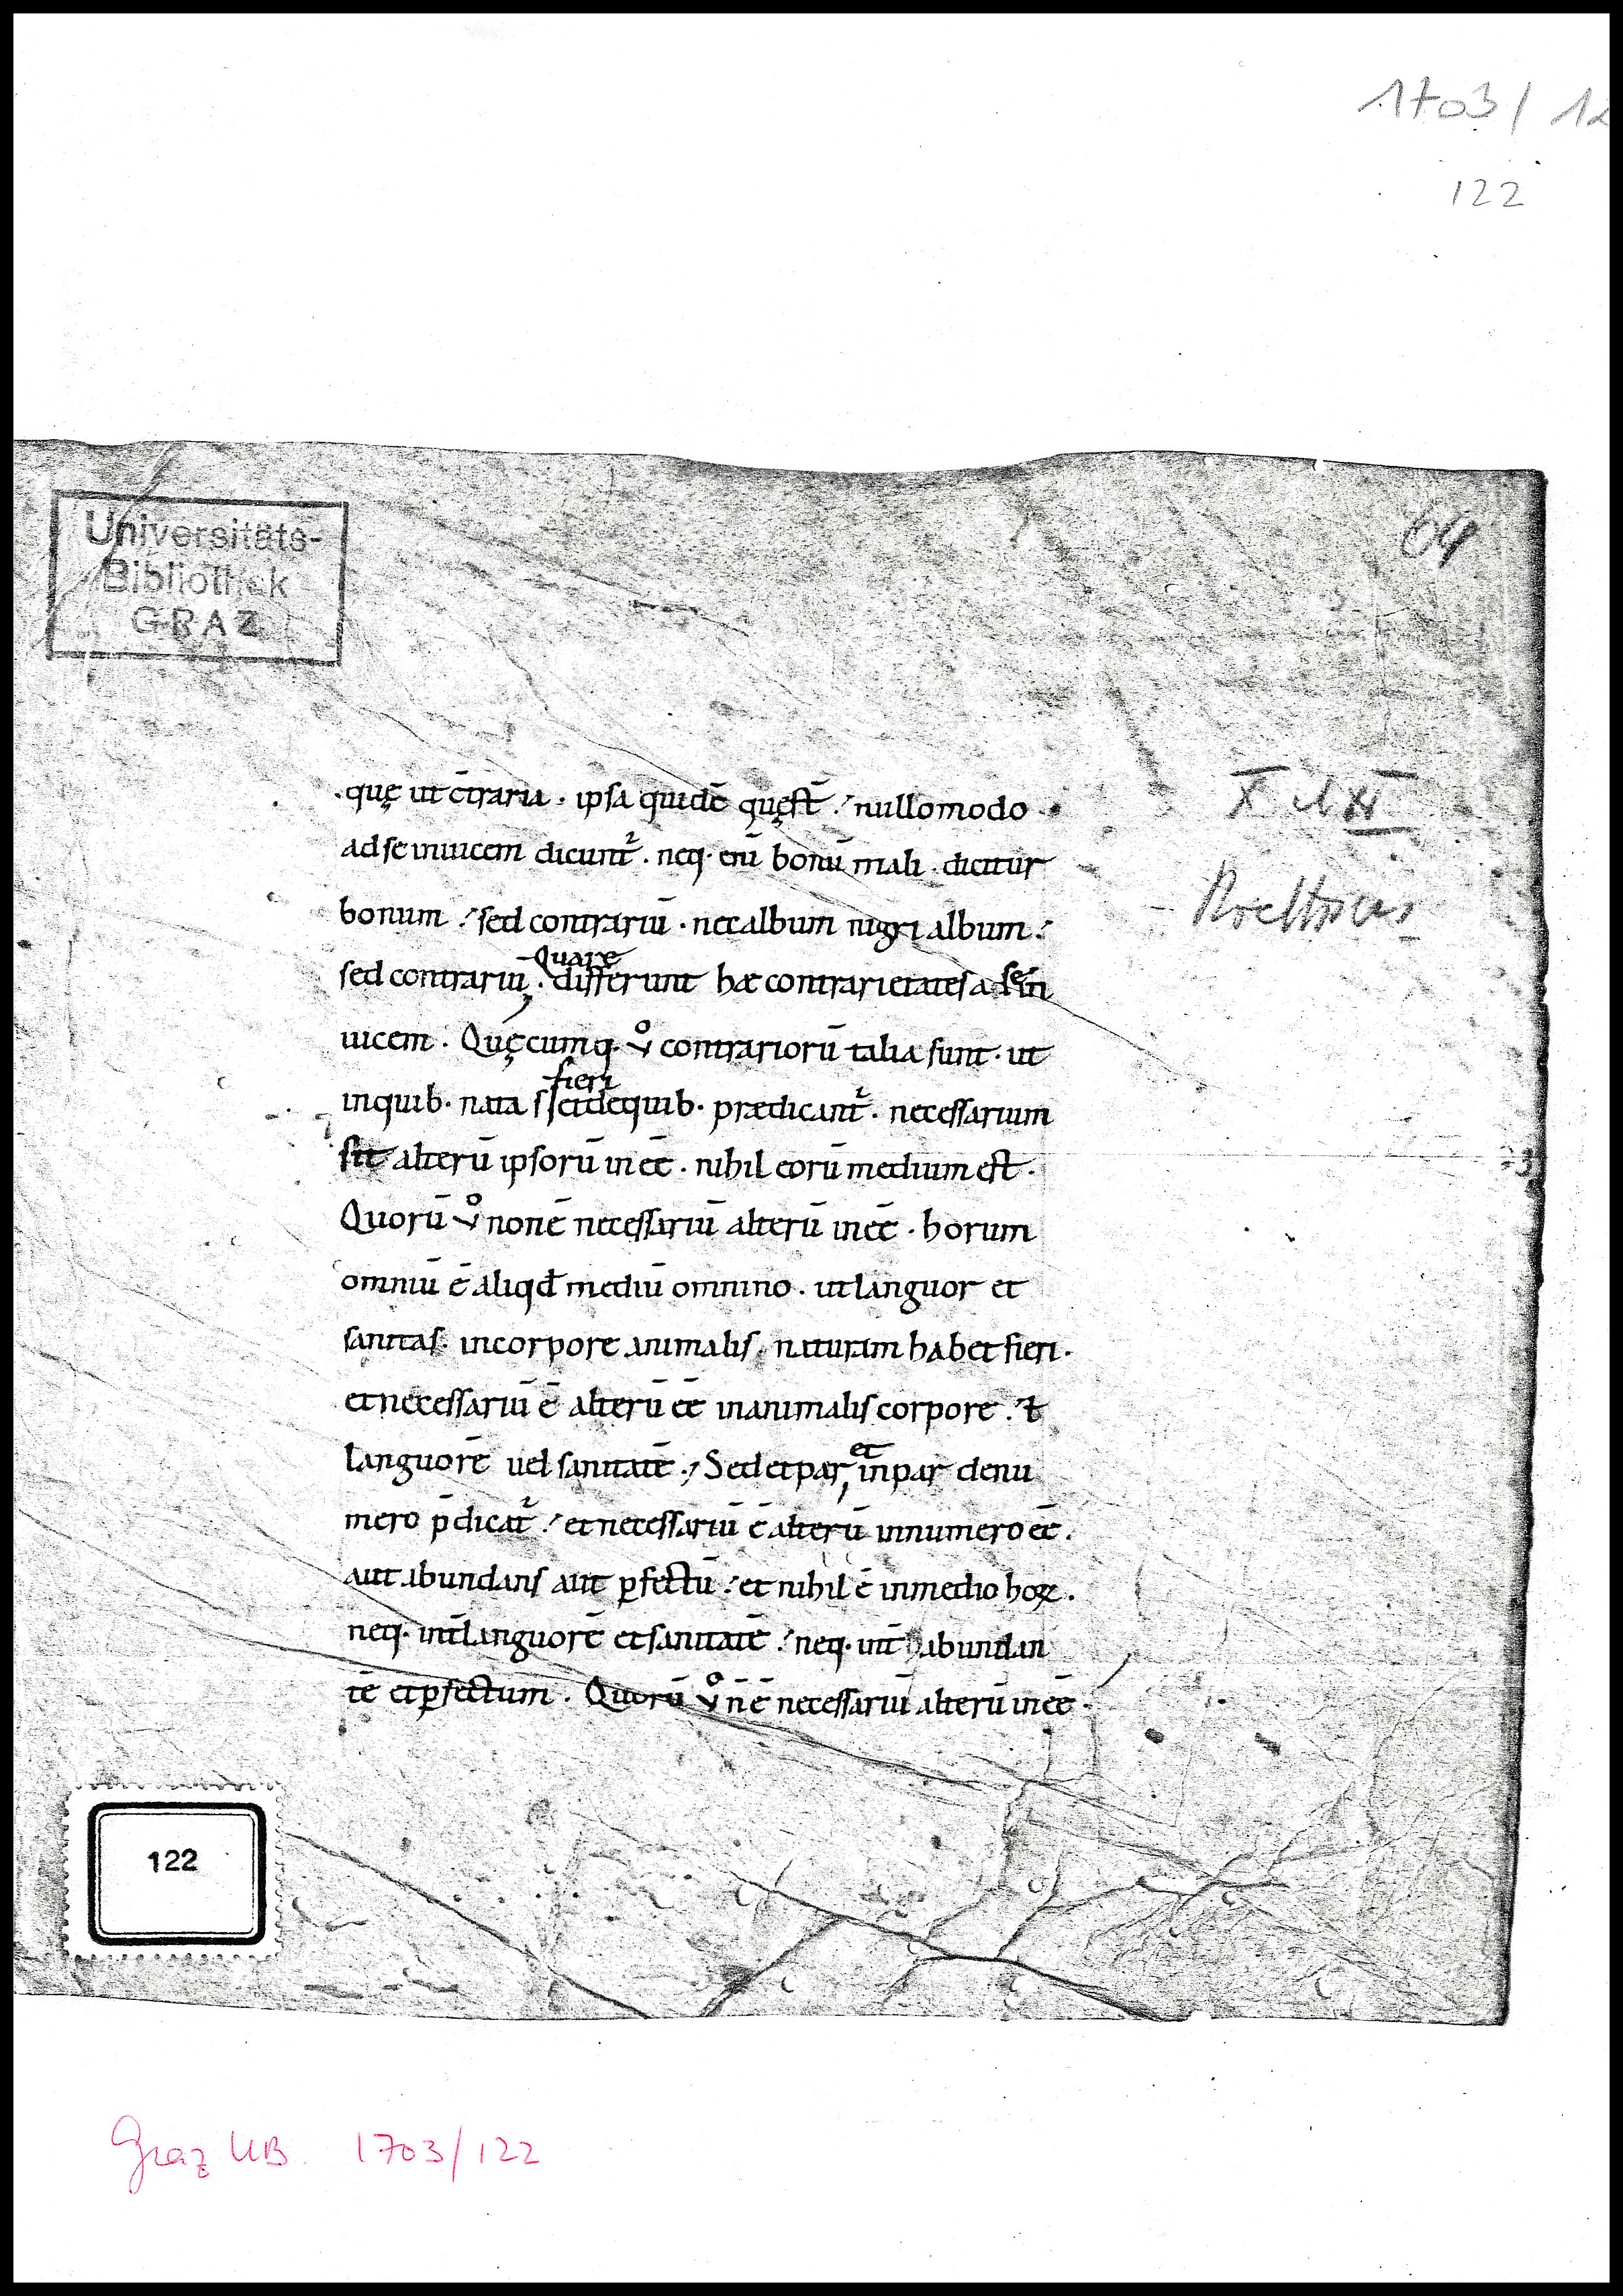 1703/ 12
122
Universitäts-
Bibliothek
GRAZ
64
·quę ut c̄traria · ipsa quidē quęst̄ :́ nullomodo ·
ad se inuicem dicunt᷑ · neq· enī bonū mali · dicitur
bonum :́ sed contrariū · nec album nigri album :́
Quare
sed contrariū · differunt hæ contrarietates ad se in
uicem · Quęcumq· v̊ contrariorū talia sunt · ut
fieri
in quib· nata s̄ et de quib· prædicant᷑ · necessarium
sit alterū ipsorū inēē · nihil eorū medium est ·
Quorū v̊ non ē necessariū alterū inēē · horum
omniū ē aliqđ mediū omnino · ut languor et
sanitas · in corpore animalis · naturam habet fieri ·
et necessariū ē alterū ēē in animalis corpore · ł
et
languorē uel sanitatē ·, Sed et par, inpar denu
mero p̄dicat᷑ :́ et necessariū ē alterū in numero ēē ·
aut abundans aut ꝑfectū :́ et nihil ē in medio hoꝝ ·
neq· int̄ languorē et sanitatē :́ neq· int̄ abundan
tē et ꝑfectum · Quorū v̊ n̄ ē necessariū alterū inēē ·
122
Graz UB. 1703/122